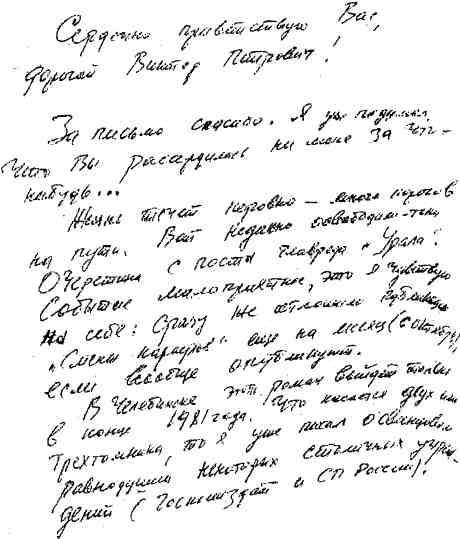 Сердечно приветствую Вас,
дорогой Виктор Петрович!
За письмо спасибо. Я уже подумал,
что Вы рассердились на меня за что-
нибудь...
Жизнь течет неровно — много порогов
на пути. Вот недавно освободили-таки
Очеретина с поста главреда „Урала".
Событие малоприятное, это я чувствую
на себе: сразу же отложили публикацию
еще на месяц (с октября),
если вообще опубликуют.
В Челябинске этот роман выйдет только
в конце 1981 года. Что касается двух или
трехтомника, то я уже писал о
равнодушии некоторых столичных учреж-
дений (Госкомиздат и СП России).